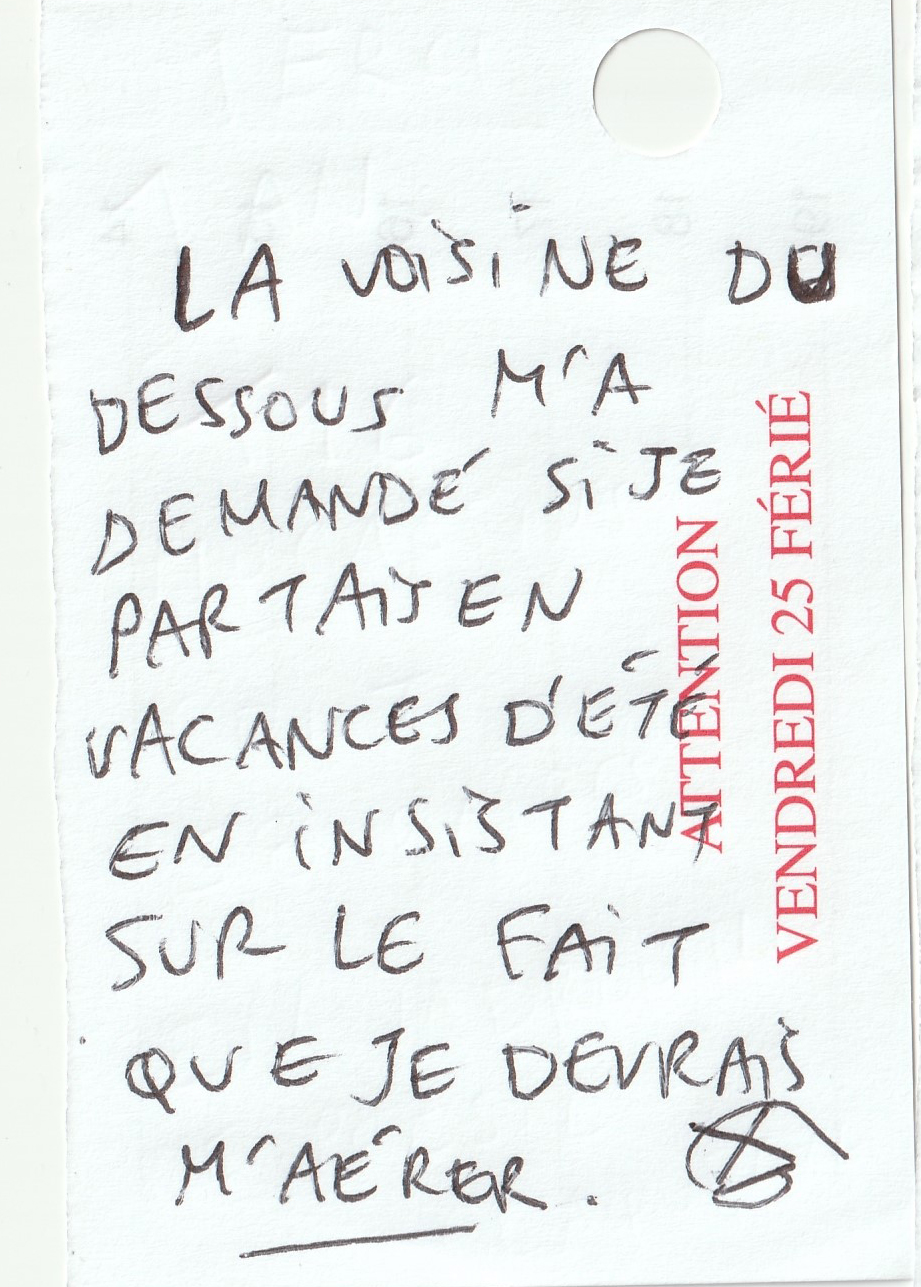 LA VOISINE DU
DESSOUS M'A
DEMANDÉ SI JE
PARTAIS EN
VACANCES D'ÉTÉ
EN INSISTANT
SUR LE FAIT
QUE JE DEVRAIS
M'AÉRER.
ATTENTION
VENDREDI 25 FÉRIÉ